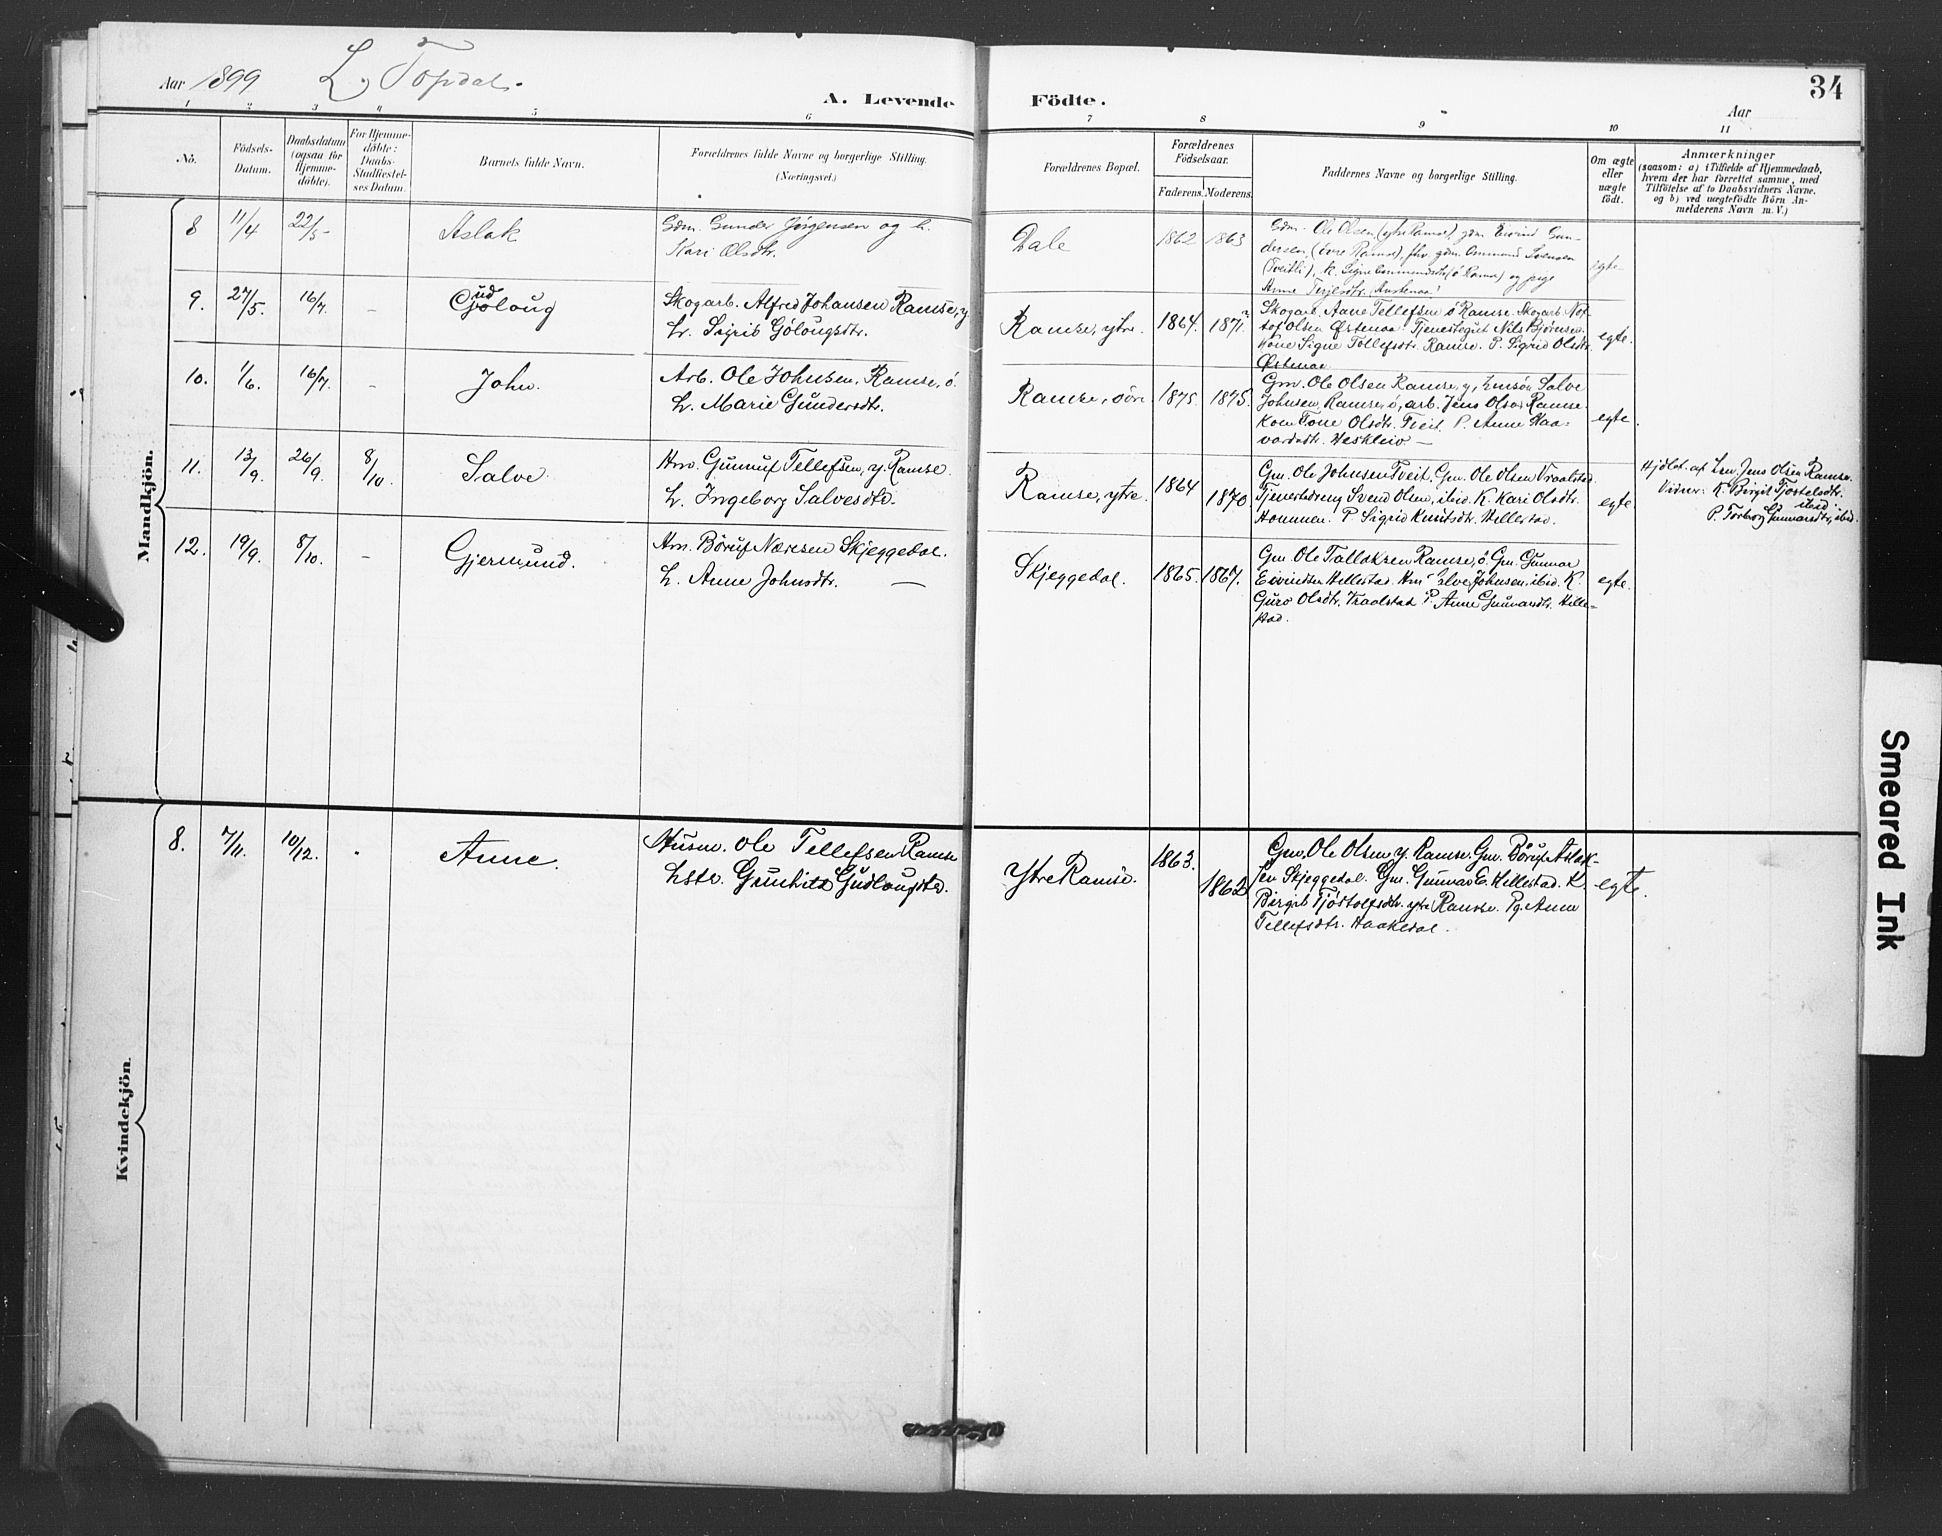 Aar 1899 Topdal.
A. Levende Födte.
34
Aar
1 2 3 4 5 6 7 8 9 10 11
No.
Födsels-
Datum.
Daabsdatum
(ogsaa for
Hjemme-
döbte).
For Hjemme-
döbte:
Daabs-
Stadfæstel-
ses Datum.
Barnets fulde Navn.
Forældrenes fulde Navne og borgerlige Stilling.
(Næringsvei.)
Forældrenes Bopæl.
Forældrenes
Födselsaar.
Faderens. Moderens.
Faddernes Navne og borgerlige Stilling.
Om ægte
eller
uægte
födt.
Anmærkninger
(saasom: a) i Tilfælde af Hjemmedaab,
hvem der har forrettet samme, med
Tilföielse af to Daabsvidners Navne.
og b) ved uægtefödte Börn An-
melderens Navn m. V.)
Mandkjön.
8 11/4 22/5 -
Aslak
Gdm. Gunder Jørgensen og h.
Kari Olsdtr.
Dale
1862 1863
Gdm. Ole Olsen (ytre Ramse), gdm. Eivind Gun-
dersen (övre Ramse), gdm. Ommund Svensen
(Tveitli), k. Signe Ommundsdtr (ö Ramse) og pige
Anne Terjesdtr.
egte
9. 27/5. 16/7. -
Gudloug
Skogarb. Alfred Johansen Ramse, y
h. Sigrid Gölougsdtr.
Ramse, ytre.
1864. 1871.
Skogarb. Aane Tellefsen ö Ramse. Skogarb. No-
Olsen Østenaa. Tjenestegut Nils Bjørnsen.
Kone Signe Tellefsdtr. Ramse. P. Sigrid Olsdtr.
Østenaa
egte.
10. 1/6. 16/7. -
John.
Arb. Ole Johnsen, Ramse, ö.
h. Marie Gundersdtr.
Ramse, övre
1875. 1875.
Gm. Ole Olsen Ramse, y, Salve
Johnsen, Ramse, ö, arb. Jens Olsen Ramse.
Kone Tone Olsdtr. Tveit. P. Anne Haa-
vardsdtr. Heskleiv —
egte.
11. 13/9. 26/9. 8/10.
Salve.
Hm. Gunnuf Tellefsen, y. Ramse.
h. Ingeborg Salvesdtr.
Ramse, ytre.
1864 1870
Gm. Ole Johnsen Tveit. Gm. Ole Olsen Vraalstad.
Tjenestedreng Svend Olsen, ibid. K. Kari Olsdtr.
Hommen. P. Sigrid Knutsdtr. Hillestad.
egte
Hjdbt. af Jens Olsen Ramse.
Vidner: K. Birgit Tjostolsdtr.
ibid.
P. Torborg Gunvaldsdtr, ibid.
12. 19/9. 8/10. -
Gjermund.
Hm. Böruf Næresen Skjeggedal.
h. Anne Johnsdtr. —
Skjeggedal.
1865. 1867.
Gm. Ole Tallaksen Ramse, ö. Gm. Gunnar
Eivindsen Hillestad. Hm. Salve Johnsen, ibid. K.
Guro Olsdtr. Vraalstad P. Anne Gunnarsdtr. Hille-
stad.
egte.
Kvindekjön.
8. 7/11. 10/12. .
Anne.
Husm. Ole Tellefsen Ramse
hstr. Gunhild Gudlougsdtr.
Ytre Ramse.
1863. 1862
Gm. Ole Olsen y. Ramse. Gm. Böruf Aslak-
sen Skjeggedal. Gm. Gunnar E. Hillestad. K.
Birgit Tjöstolfsdtr. ytre Ramse. Pg. Anne
Tellefsdtr. Haakedal.
egte.
Smeared Ink